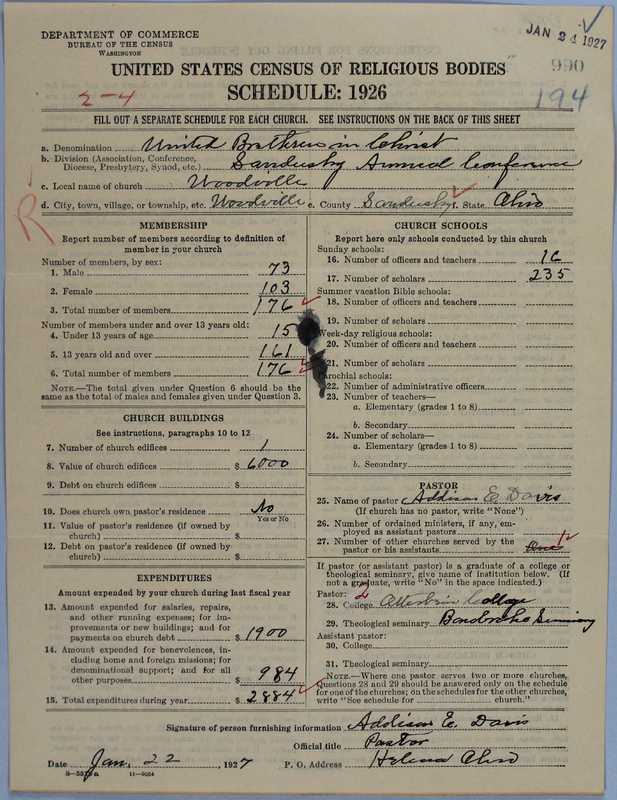 DEPARTMENT OF COMMERCE
BUREAU OF THE CENSUS
WASHINGTON
JAN 24 1927
UNITED STATES CENSUS OF RELIGIOUS BODIES
990
SCHEDULE: 1926
2-4
194
FILL OUT A SEPARATE SCHEDULE FOR EACH CHURCH. SEE INSTRUCTIONS ON THE BACK OF THIS SHEET
a. Denomination United Brethren in Christ
b. Division (Association, Conference, Diocese, Presbytery, Synod, etc.) Sandusky Annual Conference
c. Local name of church Woodville
d. City, town, village, or township, etc. Woodville e. County Sandusky f. State Ohio
R
MEMBERSHIP
Report number of members according to definition of
member in your church
Number of members, by sex:
1. Male 73
2. Female 103
3. Total number of members 176
Number of members under and over 13 years old:
4. Under 13 years of age 15
5. 13 years old and over 161
6. Total number of members 176
NOTE.—The total given under Question 6 should be
same as the total of males and females given under Question 3.
CHURCH BUILDINGS
See instructions, paragraphs 10 to 12
7. Number of church edifices 1
8. Value of church edifices $ 6000
9. Debt on church edifices $
10. Does church own pastor's residence No
Yes or No
11. Value of pastor's residence (if owned by
church) $
12. Debt on pastor's residence (if owned by
church) $
EXPENDITURES
Amount expended by your church during last fiscal year
13. Amount expended for salaries, repairs,
and other running expenses; for im-
provements or new buildings; and for
payments on church debt $ 1900
14. Amount expended for benevolences, in-
cluding home and foreign missions; for
denominational support; and for all
other purposes $ 984
15. Total expenditures during year $ 2884
CHURCH SCHOOLS
Report here only schools conducted by this church
Sunday schools:
16. Number of officers and teachers 16
17. Number of scholars 235
Summer vacation Bible schools:
18. Number of officers and teachers
19. Number of scholars
Week-day religious schools:
20. Number of officers and teachers
21. Number of scholars
Parochial schools:
22. Number of administrative officers
23. Number of teachers—
a. Elementary (grades 1 to 8)
b. Secondary
24. Number of scholars—
a. Elementary (grades 1 to 8)
b. Secondary
PASTOR
25. Name of pastor Addison E. Davis
(If church has no pastor, write "None")
26. Number of ordained ministers, if any, em-
ployed as assistant pastors
27. Number of other churches served by the
pastor or his assistants One 1
If pastor (or assistant pastor) is a graduate of a college or
theological seminary, give name of institution below. (If
not a graduate, write "No" in the space indicated.)
Pastor: 2
28. College Otterbein College
29. Theological seminary Bonebrake Seminary
Assistant pastor:
30. College
31. Theological seminary
NOTE.—Where one pastor serves two or more churches,
Questions 28 and 29 should be answered only on the schedule
for one of the churches; on the schedules for the other churches,
write "See schedule for church."
Signature of person furnishing information Addison E. Davis
Official title Pastor
Date Jan. 22, 1927 P. O. Address Helena Ohio
11-9054